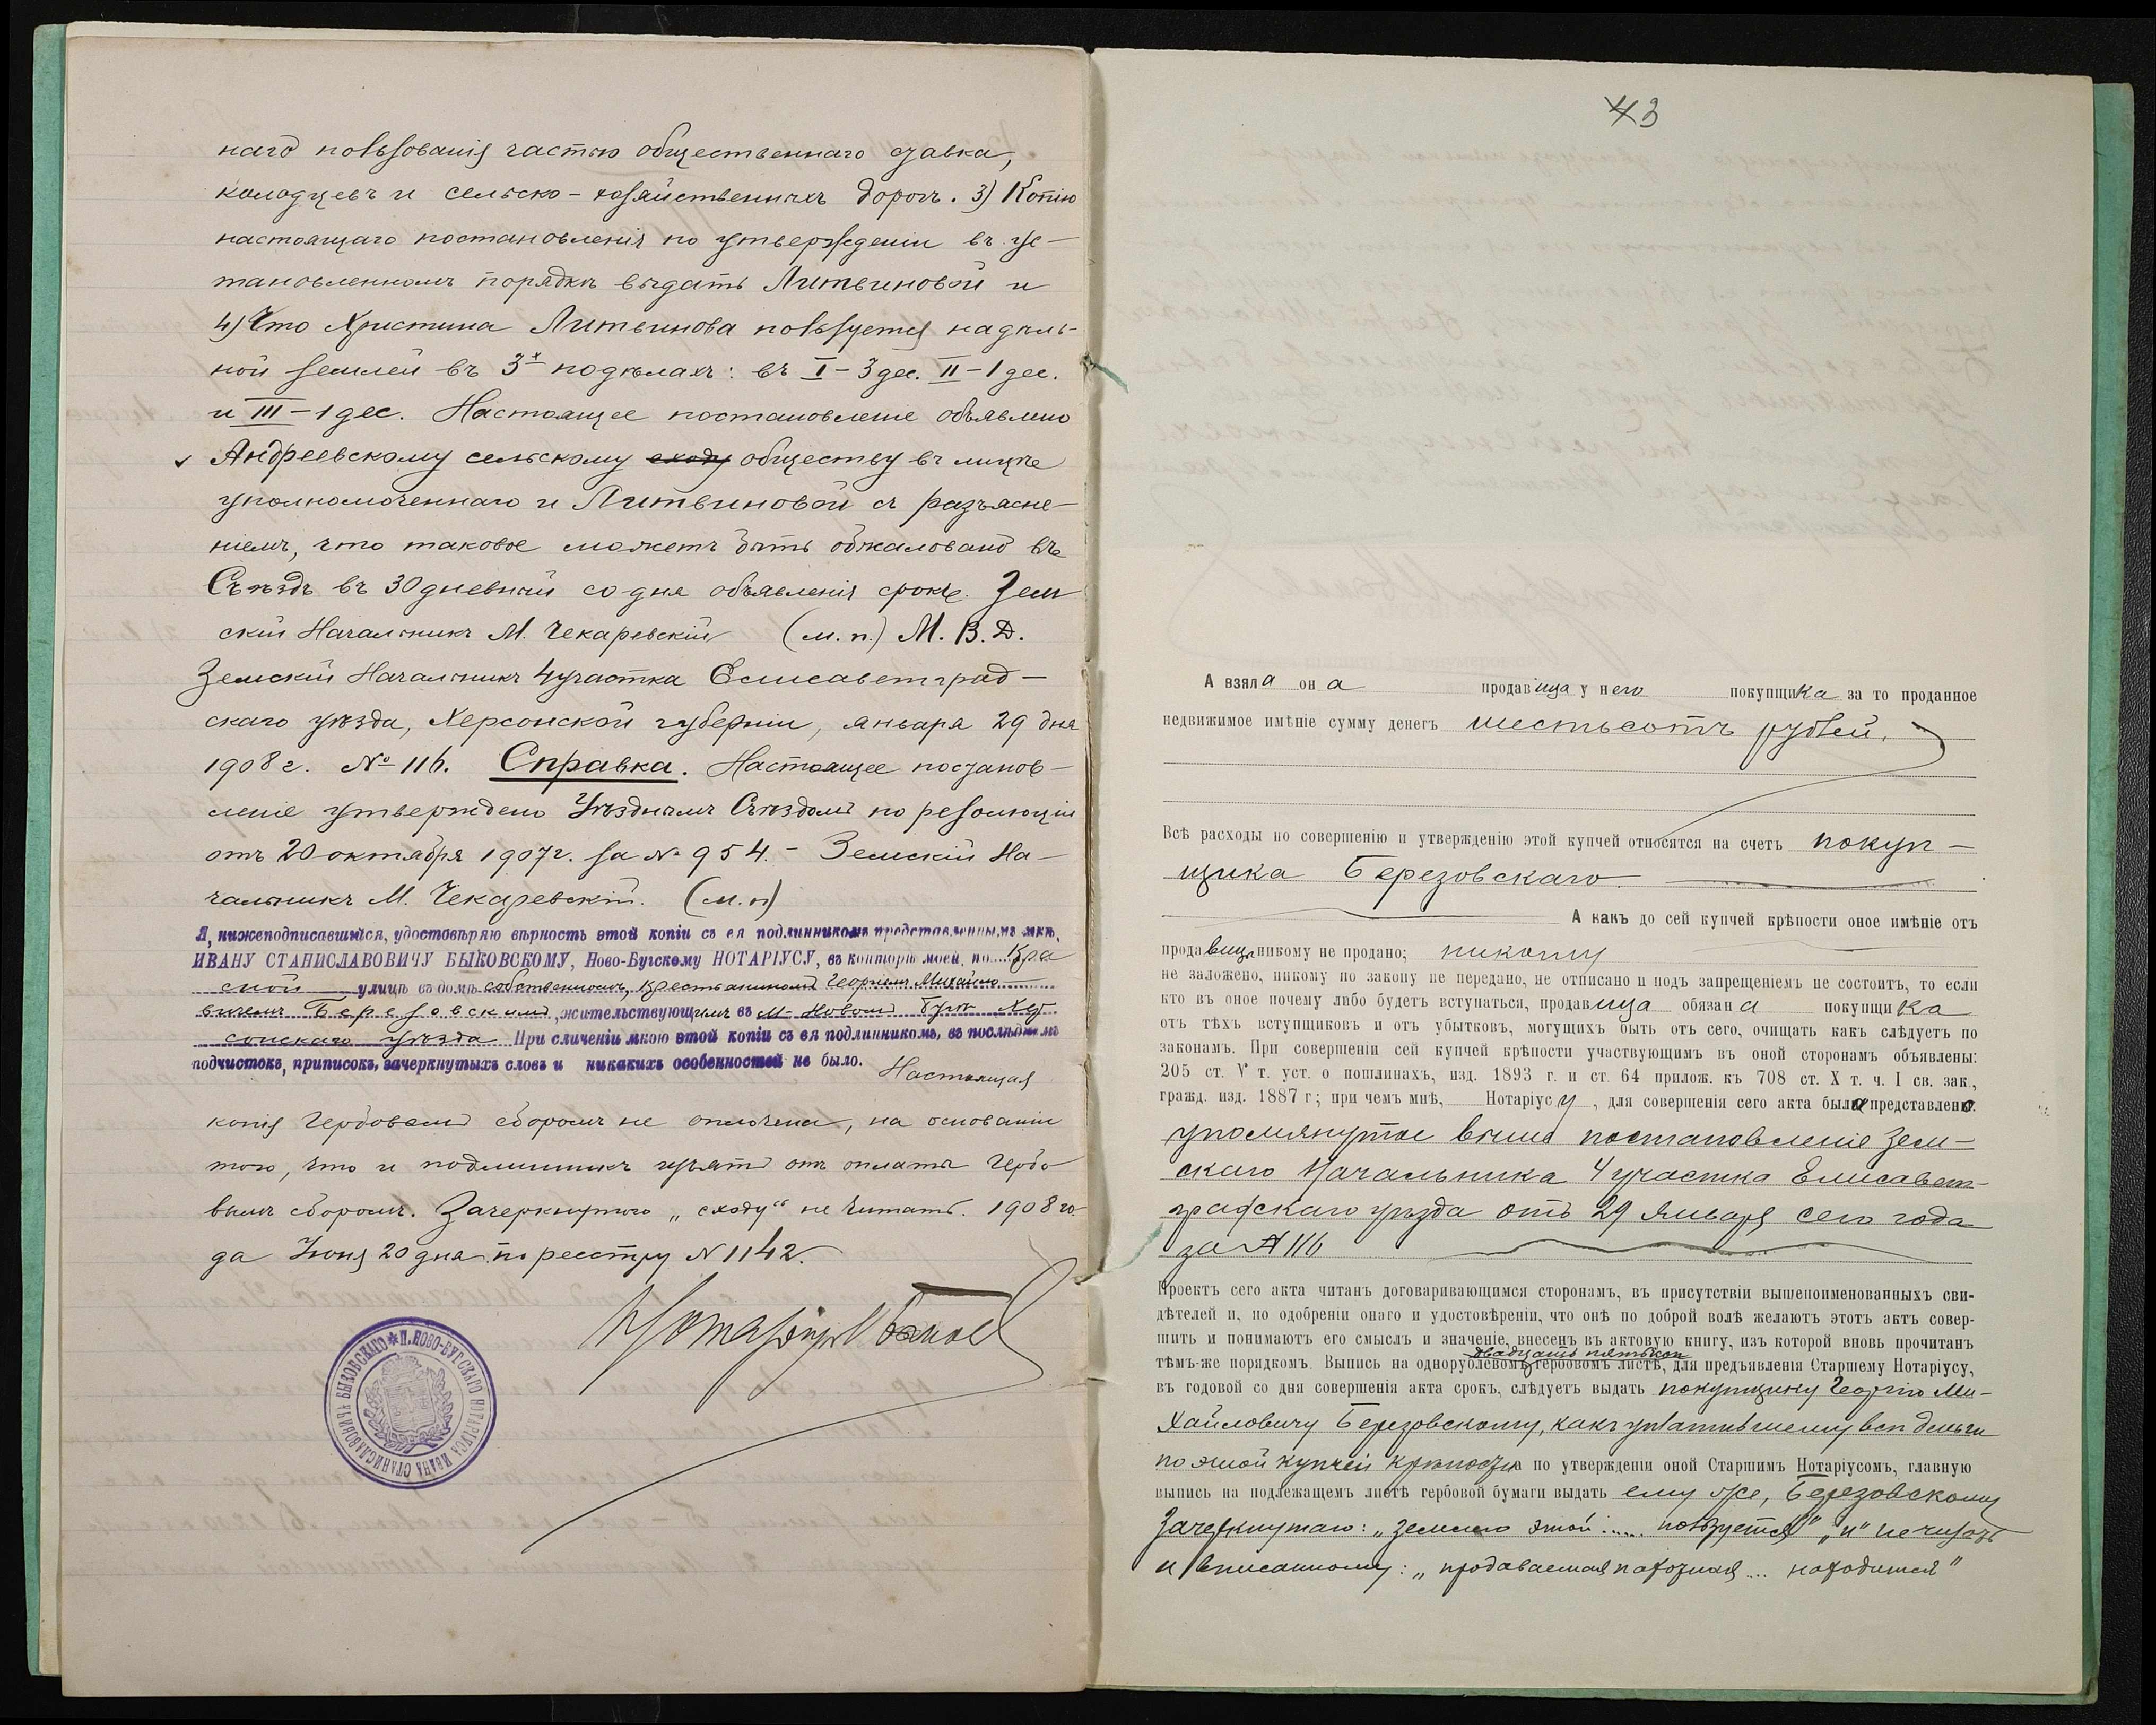 наго пользованія частью общественнаго ставка,
колодцевъ и сельско-хозяйственныхъ дорогъ. 3) Копію
настоящаго постановленія по утвержденіи въ ус-
тановленномъ порядкѣ выдать Литвиновой и
4) Что Христина Литвинова пользуется надѣль-
ной землей въ 3х подѣлахъ: въ I – 3 дес. II – 1 дес.
и III – 1 дес. Настоящее постановленіе объявлено
Андреевскому сельскому сходу обществу въ лицѣ
уполномоченнаго и Литвиновой съ разъясне-
ніемъ, что таковое можетъ быть обжаловано въ
Съѣздъ въ 30 дневный со дня объявленія срокъ. Зем
скій Начальникъ М. Чекаревскій (м. п.) М. В. Д.
Земскій Начальникъ 4 участка Елисаветград-
скаго уѣзда, Херсонской губерніи, января 29 дня
1908 г. № 116. Справка. Настоящее постанов-
леніе утверждено Уѣзднымъ Съѣздомъ по резолюціи
отъ 20 октября 1907 г. за № 954. – Земскій На-
чальникъ М. Чекаревскій. (м. п)
Я, нижеподписавшійся, удостовѣряю вѣрность этой копіи съ ея подлинникомъ представленнымъ мнѣ,
ИВАНУ СТАНИСЛАВОВИЧУ БЫКОВСКОМУ, Ново-Бугскому НОТАРІУСУ, въ конторѣ моей, по Кра
сной улицѣ въ домѣ собственномъ, крестьяниномъ Георгіемъ Михайло-
вичемъ Березовскимъ, жительствующимъ въ м. Новомъ Бугѣ Хер
сонскаго уѣзда При сличеніи мною этой копіи съ ея подлинникомъ, въ послѣднемъ
подчистокъ, приписокъ, зачеркнутыхъ словъ и никакихъ особенностей не было. Настоящая
копія гербовымъ сборомъ не оплочена, на основаніи
того, что и подлинникъ изъятъ отъ оплаты гербо
вымъ сборомъ. Зачеркнутого „сходу“ не читать. 1908 го-
да Іюня 20 дня. по реестру N 1142.
Нотаріусъ
* П. НОВО-БУГСКАГО НОТАРІУСА ИВАНА СТАНИСЛАВОВИЧА БЫКОВСКАГО
43
А взяла она продавица у него покупщика за то проданное
недвижимое имѣніе сумму денегъ шестьсотъ рублей.
Всѣ расходы по совершенію и утвержденію этой купчей относятся на счетъ покуп-
щика Березовскаго.
А какъ до сей купчей крѣпости оное имѣніе отъ
продавицы никому не продано; никому
не заложено, никому по закону не передано, не отписано и подъ запрещеніемъ не состоитъ, то если
кто въ оное почему либо будетъ вступаться, продавица обязана покупщика
отъ тѣхъ вступщиковъ и отъ убытковъ, могущихъ быть отъ сего, очищать какъ слѣдуетъ по
законамъ. При совершеніи сей купчей крѣпости участвующимъ въ оной сторонамъ объявлены:
205 ст. V т. уст. о пошлинахъ, изд. 1893 г. и ст. 64 прилож. къ 708 ст. X т. ч. I св. зак.,
гражд. изд. 1887 г; при чемъ мнѣ, Нотаріусу, для совершенія сего акта было представлено.
упомянутое выше постановленіе Зем-
скаго Начальника 4 участка Елисавет-
градскаго уѣзда отъ 29 Января сего года
за № 116
Проектъ сего акта читанъ договаривающимся сторонамъ, въ присутствіи вышепоименованныхъ сви-
дѣтелей и, по одобреніи онаго и удостовѣреніи, что онѣ по доброй волѣ желаютъ этотъ актъ совер-
шить и понимаютъ его смыслъ и значеніе, внесенъ въ актовую книгу, изъ которой вновь прочитанъ
двадцать пятькоп
тѣмъ-же порядкомъ. Выпись на однорублевомъ гербовомъ листѣ, для предъявленія Старшему Нотаріусу,
въ годовой со дня совершенія акта срокъ, слѣдуетъ выдать покупщику Георгію Ми-
хайловичу Березовскому, какъ уплатившему всѣ деньги
по этой купчей крѣпости а по утвержденіи оной Старшимъ Нотаріусомъ, главную
выпись на подлежащемъ листѣ гербовой бумаги выдать ему же, Березовскому
Зачеркнутаго: „землею этой ..... пользуется“ „и“ не читать
и вписанному: „продаваемая ... находится“